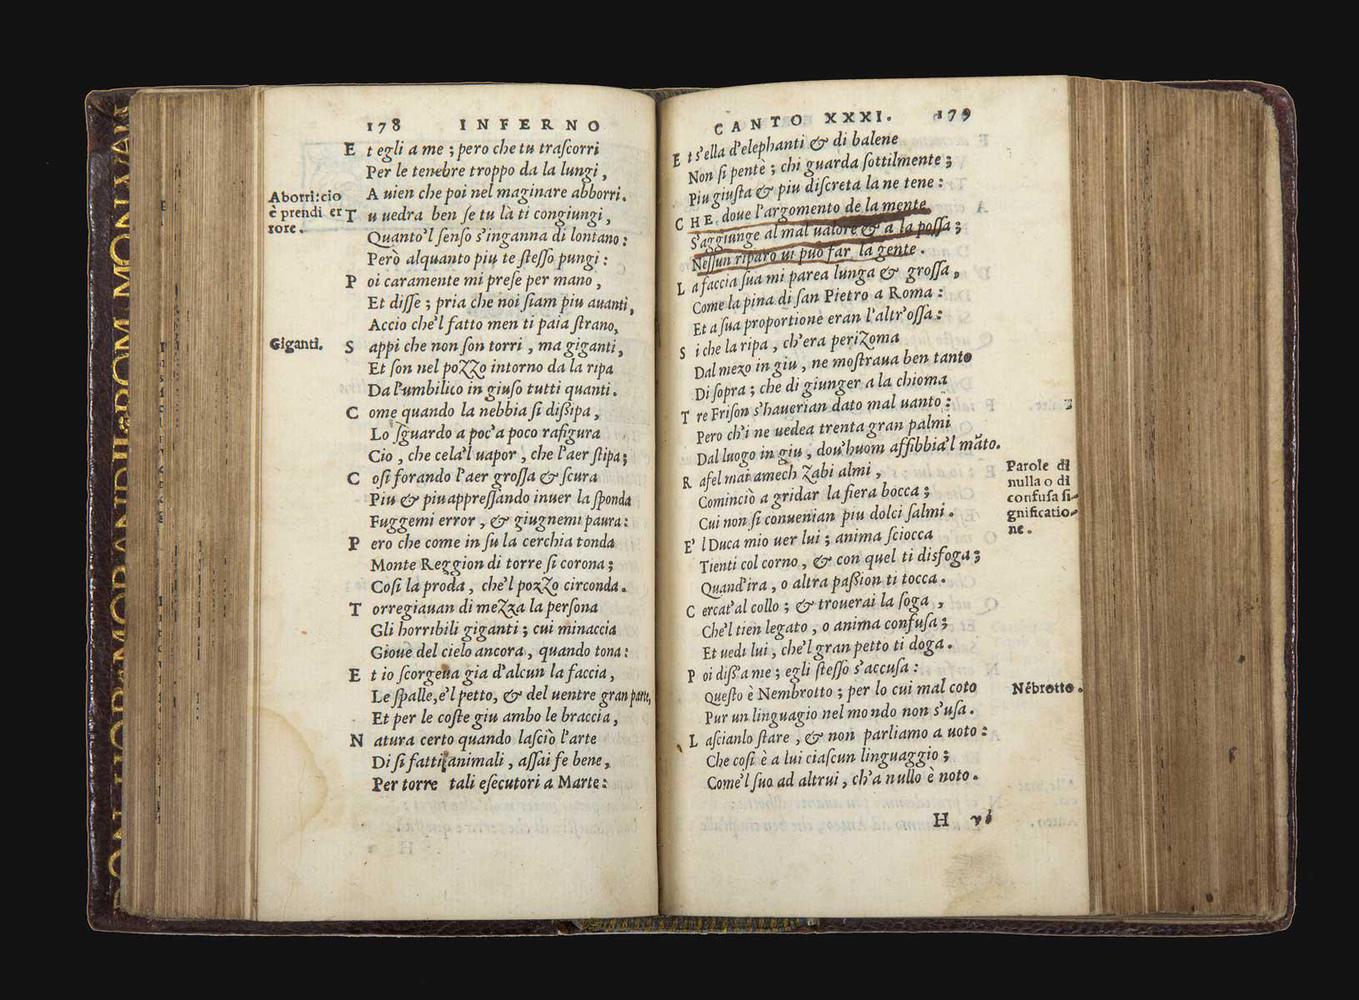 178 INFERNO
E t egli a me ; pero che tu traſcorri
Per le tenebre troppo da la lungi ,
A uien che poi nel maginare abborri.
T u uedra ben ſe tu là ti congiungi ,
Quanto'l ſenſo s'inganna di lontano :
Però alquanto piu te ſteſſo pungi :
P oi caramente mi preſe per mano ,
Et diſſe ; pria che noi ſiam piu auanti,
Accio che'l fatto men ti paia ſtrano,
S appi che non ſon torri , ma giganti ,
Et ſon nel pozzo intorno da la ripa
Da l'umbilico in giuſo tutti quanti .
C ome quando la nebbia ſi diſsipa ,
Lo ſguardo a poc'a poco rafigura
Cio , che cela'l uapor , che l'aer ſtipa ;
C oſi forando l'aer groſſa & ſcura
Piu & piu appreſſando inuer la ſponda
Fuggemi error , & giugnemi paura :
P ero che come in ſu la cerchia tonda
Monte Reggion di torre ſi corona ;
Coſi la proda , che'l pozzo circonda .
T orregiauan di mezza la perſona
Gli horribili giganti ; cui minaccia
Gioue del cielo ancora , quando tona :
E t io ſcorgeua gia d'alcun la faccia ,
Le ſpalle, e'l petto, & del uentre gran parte,
Et per le coſte giu ambo le braccia ,
N atura certo quando laſciò l'arte
Di ſi fatti animali , aſſai fe bene ,
Per torre tali eſecutori a Marte :
Aborritcio
è prendi er
rore .
Giganti.
CANTO XXXI. 179
E t s'ella d'elephanti & di balene
Non ſi pentè ; chi guarda ſottilmente ;
Piu giuſta & piu diſcreta la ne tene :
C HE doue l'argomento de la mente
S'aggiunge al mal ualore & a la poſſa ;
Neſſun riparo ui puo far la gente .
L a faccia ſua mi parea lunga & groſſa ,
Come la pina di ſan Pietro a Roma :
Et a ſua proportione eran l'altr'oſſa :
S i che la ripa , ch'era perizoma
Dal mezo in giu , ne moſtraua ben tanto
Di ſopra ; che di giunger a la chioma
T re Friſon s'hauerian dato mal uanto :
Pero ch'i ne uedea trenta gran palmi
Dal luogo in giu , dou'huom affibbia'l mãto.
R afel mai amech zabi almi ,
Cominciò a gridar la fiera bocca ;
Cui non ſi conuenian piu dolci ſalmi .
E' l Duca mio uer lui ; anima ſciocca
Tienti col corno , & con quel ti disfoga ;
Quand'ira , o altra paſsion ti tocca .
C ercat'al collo ; & trouerai la ſoga ,
Che'l tien legato , o anima confuſa ;
Et uedi lui , che'l gran petto ti doga .
P oi diſs'a me ; egli ſteſſo s'accuſa :
Queſto è Nembrotto ; per lo cui mal coto
Pur un linguagio nel mondo non s'uſa .
L aſcianlo ſtare , & non parliamo a uoto :
Che coſi è a lui ciaſcun linguaggio ;
Come'l ſuo ad altrui , ch'a nullo è noto .
Parole di
nulla o di
confuſa ſi-
gnificatio-
ne .
Nébrotto .
H vi